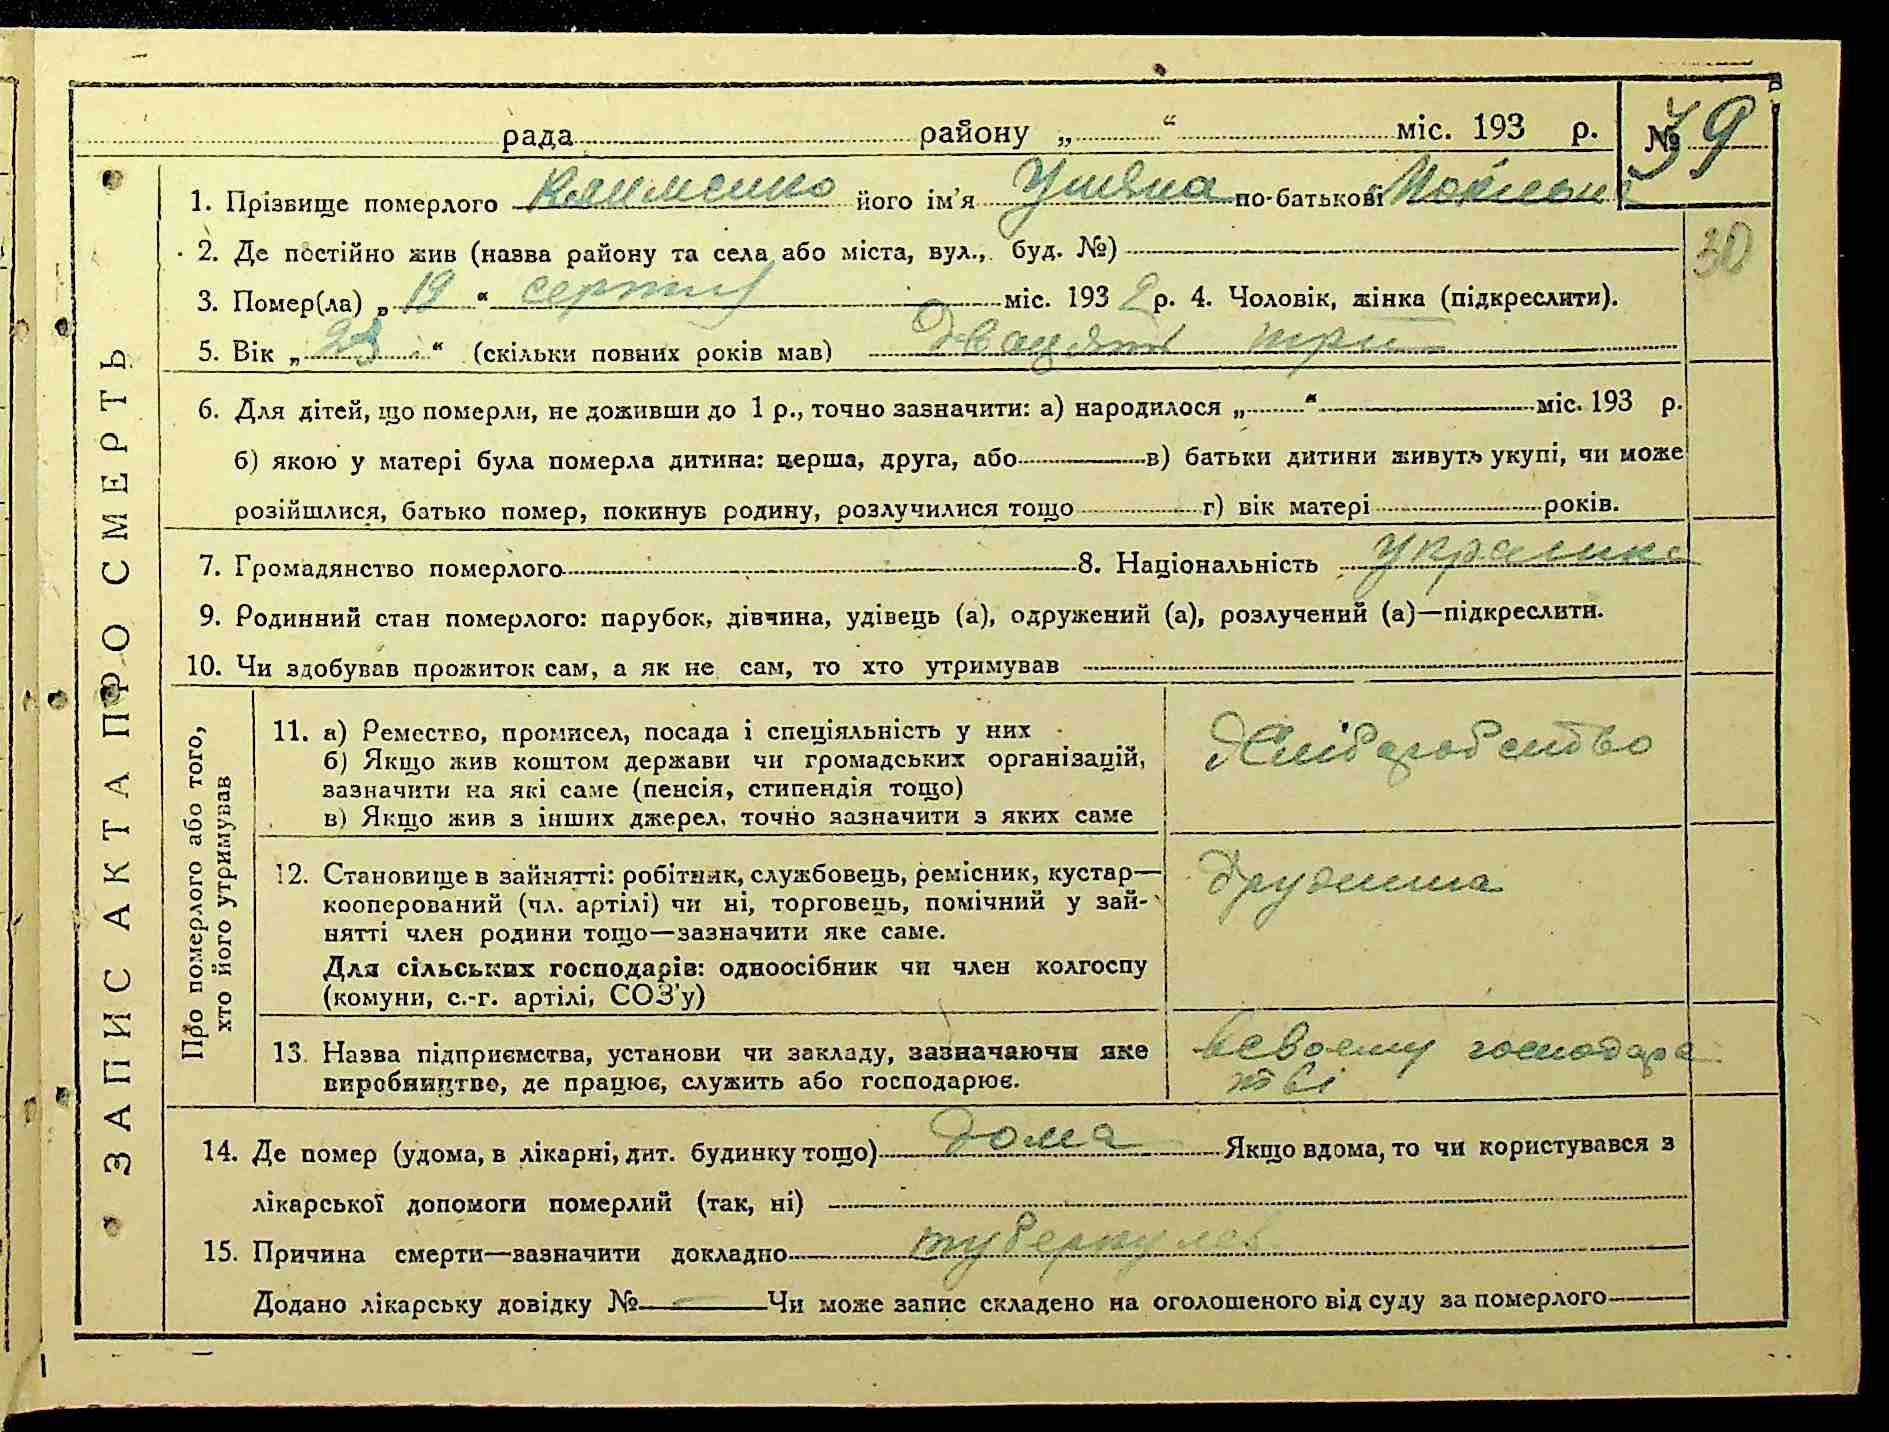 рада району „ “ міс. 193 р. № 39
1. Прізвище померлого Клименко його ім'я Уляна по-батькові
2. Де постійно жив (назва району та села або міста, вул., буд. №)
30
3. Помер(ла) „ 19 “ серпня міс. 193 2 р. 4. Чоловік, жінка (підкреслити).
5. Вік „ 23 “ (скільки повних років мав) Двацять три
6. Для дітей, що померли, не доживши до 1 р., точно зазначити: а) народилося „ “ міс. 193 р.
б) якою у матері була померла дитина: перша, друга, або в) батьки дитини живуть укупі, чи може
розійшлися, батько помер, покинув родину, розлучилися тощо г) вік матері років.
7. Громадянство померлого 8. Національність Українка
9. Родинний стан померлого: парубок, дівчина, удівець (а), одружений (а), розлучений (а)—підкреслити.
10. Чи здобував прожиток сам, а як не сам, то хто утримував
ЗАПИС АКТА ПРО СМЕРТЬ
Про померлого або того,
хто його утримував
11. а) Ремество, промисел, посада і спеціяльність у них
б) Якщо жив коштом держави чи громадських організацій,
зазначити на які саме (пенсія, стипендія тощо)
в) Якщо жив з інших джерел, точно зазначити з яких саме
Хліборобство
12. Становище в зайнятті: робітник, службовець, ремісник, кустар—
кооперований (чл. артілі) чи ні, торговець, помічний у зай-
нятті член родини тощо—зазначити яке саме.
Для сільських господарів: одноосібник чи член колгоспу
(комуни, с.-г. артілі, СОЗ'у)
дружина
13. Назва підприємства, установи чи закладу, зазначаючи яке
виробництво, де працює, служить або господарює.
всвоєму господарс
тві
14. Де помер (удома, в лікарні, дит. будинку тощо) дома Якщо вдома, то чи користувався з
лікарської допомоги померлий (так, ні)
15. Причина смерти—зазначити докладно туберкульоз
Додано лікарську довідку № Чи може запис складено на оголошеного від суду за померлого